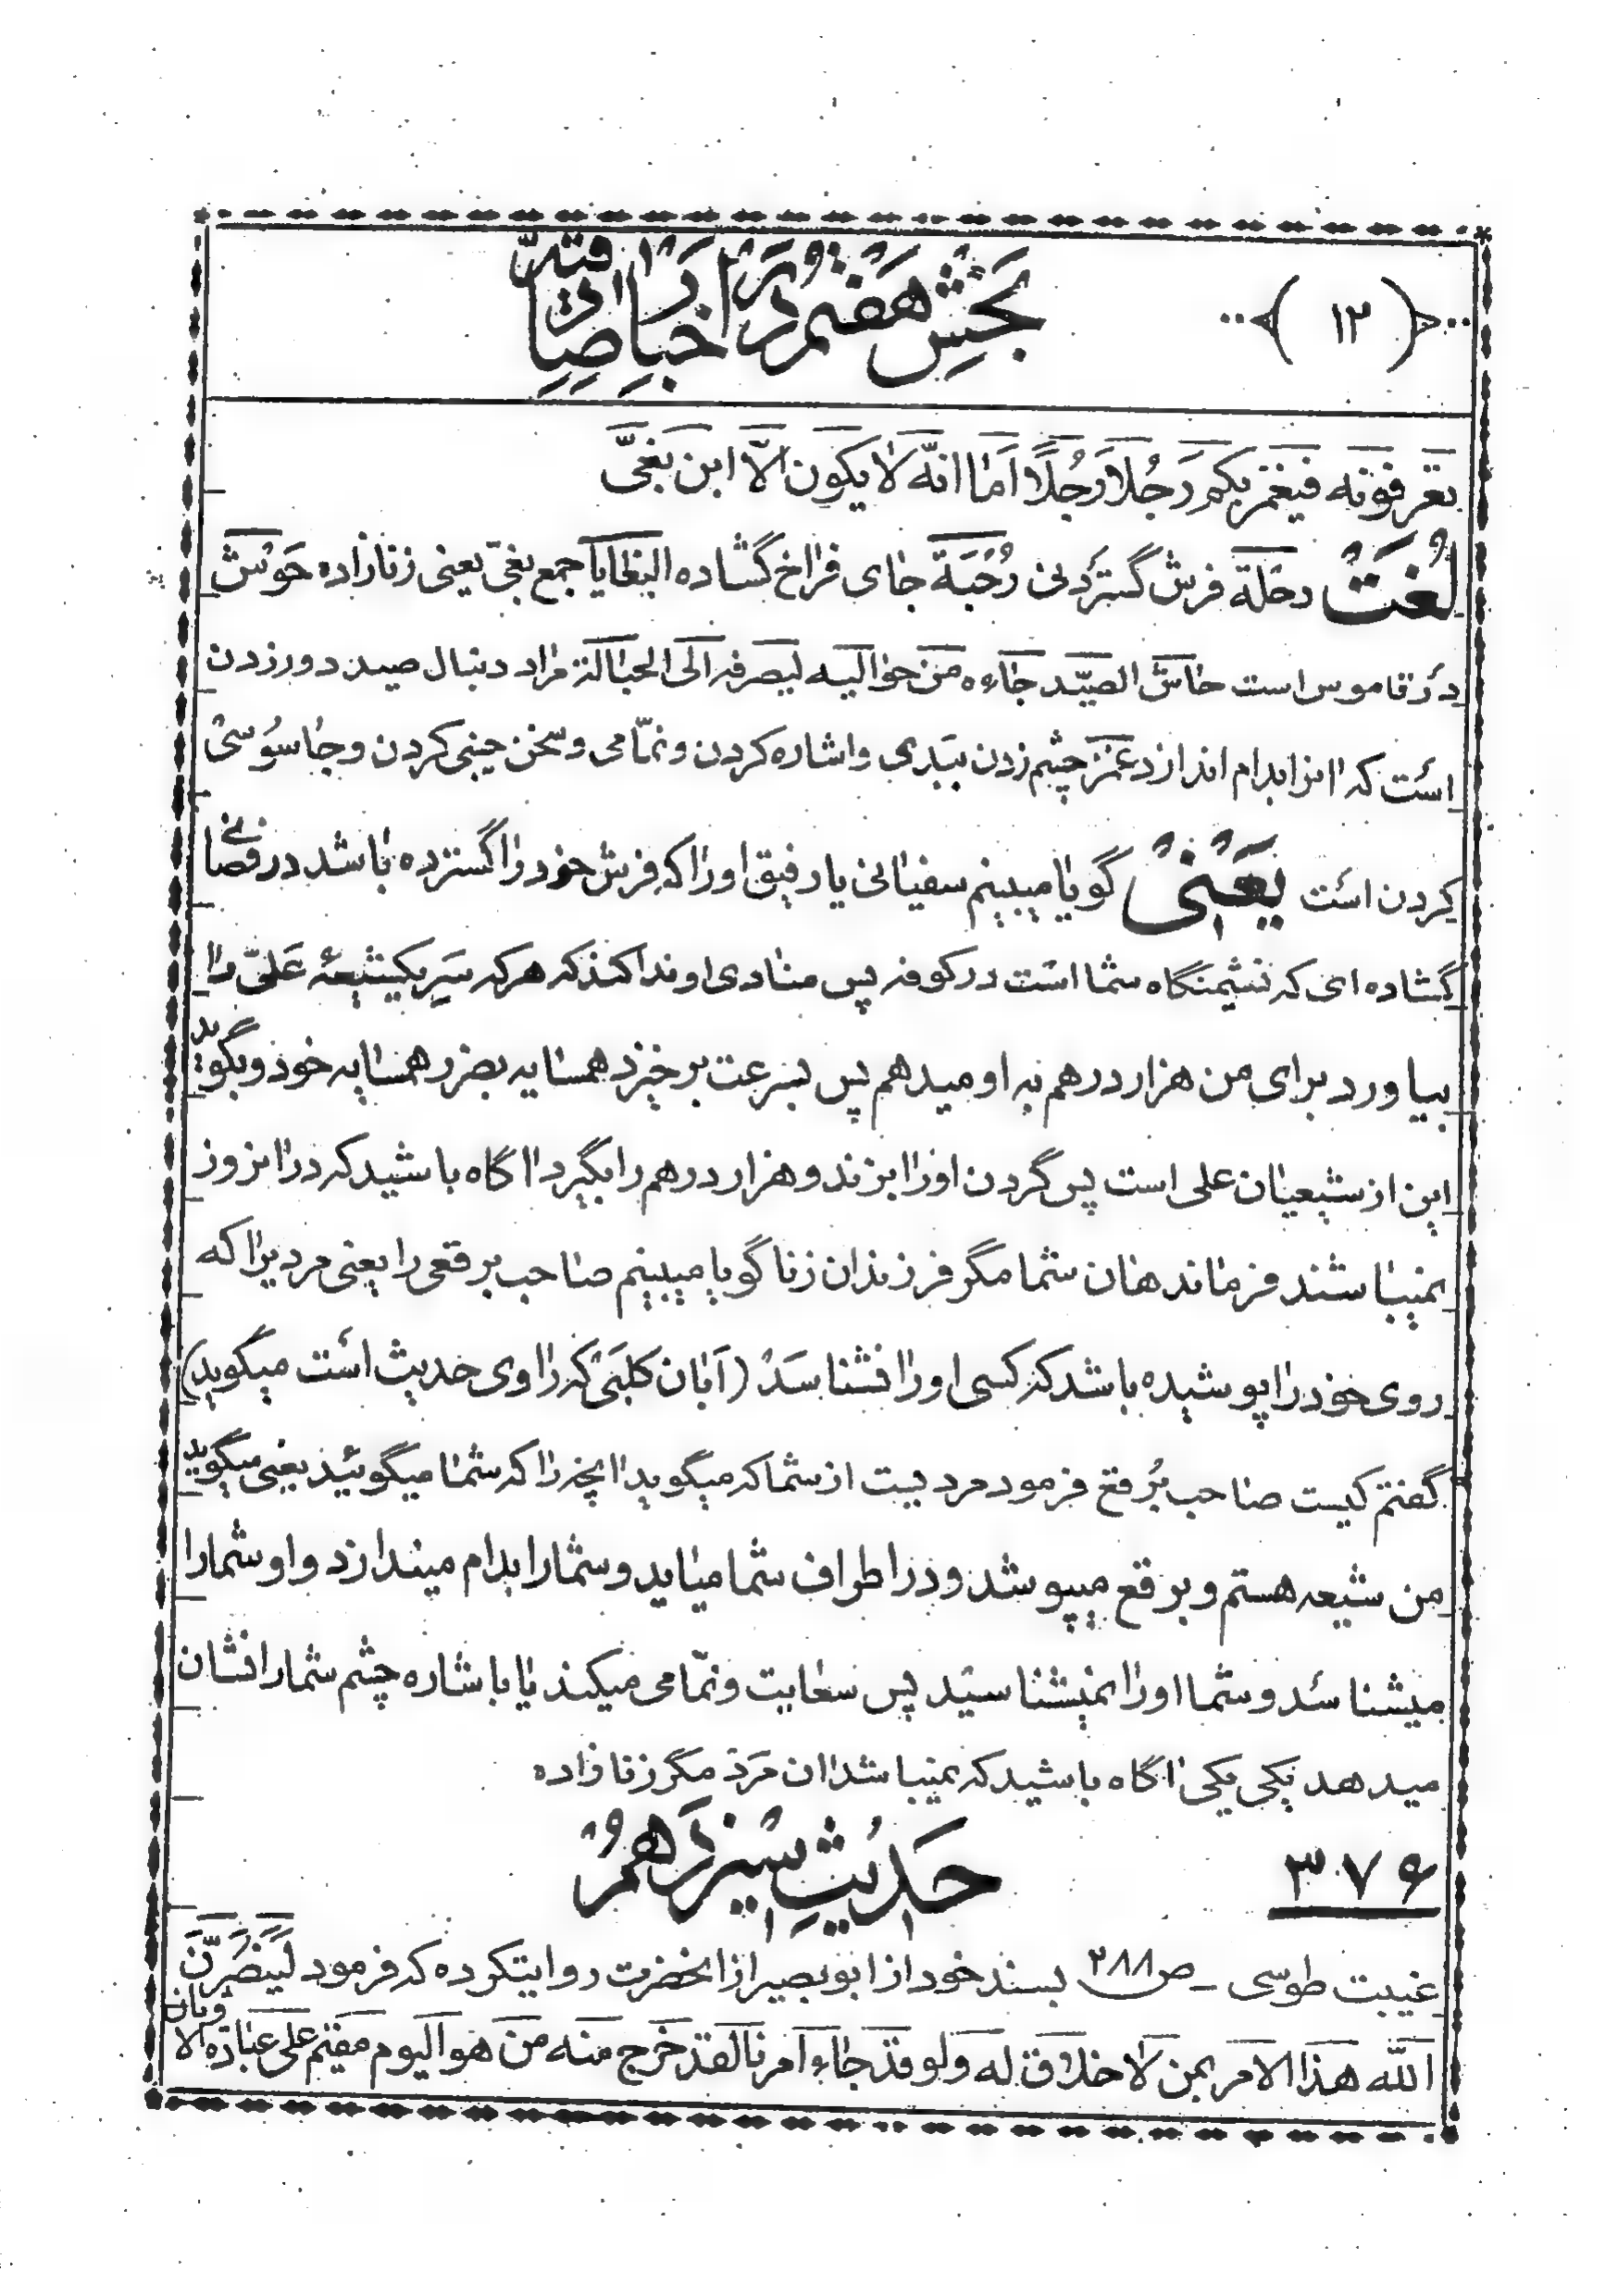 ﴿ ۱۲ ﴾ بخش هفتم در اخبار صادقیه
تعرفونه فیغمز بکم رجلا رجلا اما انه لا یکون الا ابن بغی
لغت رحلة فرش گستردنی رحبة جای فراخ گشاده البغایا جمع بغی یعنی زنازاده حوش
در قاموس است حاش الصید جاءه من حوالیه لیصرفه الی الحبالة مراد دنبال صید دور زدن
است که آنرا بدام اندازد غمز چشم زدن ببدی و اشاره کردن و نمّامی و سخن چینی کردن و جاسوسی
کردن است یعنی گویا میبینم سفیانی یا رفیق او را که فرش خود را گسترده باشد در فضای
گشاده ای که نشیمنگاه شما است در کوفه پس منادی او ندا کند که هر که سر یکشیعۀ علیّ را
بیاورد برای من هزار درهم به او میدهم پس بسرعت برخیزد همسایه بضرر همسایه خود و بگوید
این از شیعیان علی است پس گردن او را بزند و هزار درهم را بگیرد آگاه باشید که در آنروز
نمیباشند فرماندهان شما مگر فرزندان زنا گویا میبینم صاحب برقعی را یعنی مردیرا که
روی خود را پوشیده باشد که کسی او را نشناسد (آبان کلبی که راوی حدیث است میگوید)
گفتم کیست صاحب برقع فرمود مردیست از شما که میگوید آنچه را که شما میگوئید یعنی میگوید
من شیعه هستم و برقع میپوشد و در اطراف شما میاید و شما را بدام میندازد و او شما را
میشناسد و شما او را نمیشناسید پس سعایت و نمّامی میکند یا با اشاره چشم شما را نشان
میدهد یکی یکی آگاه باشید که نمیباشد آن مرد مگر زنازاده
۳۷۶ حدیث سیزدهم
غیبت طوسی - ص ۲۸۸ بسند خود از ابوبصیر از آنحضرت روایتکرده که فرمود لینصرنّ
الله هذا الامر بمن لا خلاق له ولو قد جاء امرنا لقد خرج منه من هو الیوم مقیم علی عبادة الاوثان